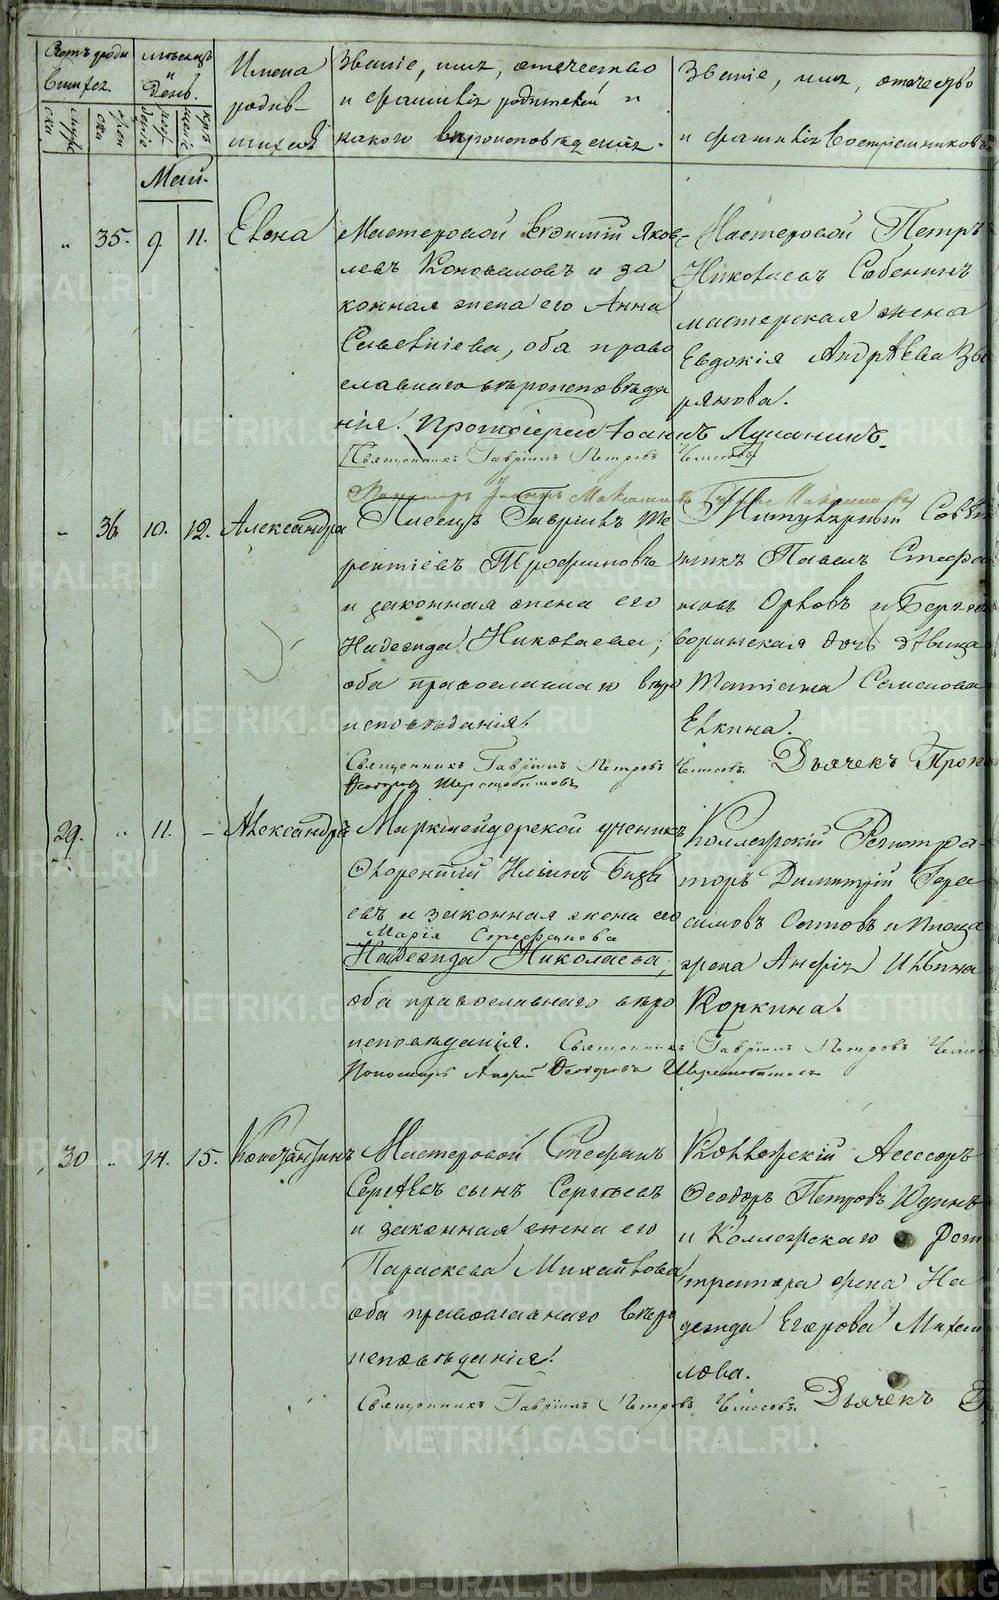 METRIKI.GASO-URAL.RU
Счетъ роди
вшихся
муже
ска
жен
ска
мѣсяцъ
и
День.
рож
денія
кре
щенія
Имена
родив-
шихся
Званіе, имя, отечество
и фамилія родителей и
какого вѣроисповѣданія.
Званіе, имя, отечество
и фамилія воспріемниковъ
Май.
„ 35. 9. 11. Елена
Мастеровой Яков-
левъ Коноваловъ и за
конная жена его Анна
Савельіева, оба право
славнаго вѣроисповѣда
нія. Протоіерей Іоаннъ Луканинъ.
Священникъ Гавріилъ Петровъ Чемесовъ
Мастеровой Петръ
Николаевъ Собенинъ
мастерская жена
Евдокія Андрѣева Зы
рянова.
„ 36. 10. 12. Александра
Писецъ Гавріилъ Те
рентіевъ Трофимовъ
и законная жена его
Надежда Николаева,
оба православнаго вѣро
исповѣданія.
Священникъ Гавріилъ Петровъ Чемесовъ. Дьячекъ
Титулярный Совѣт
никъ Павелъ Стефа
новъ Орловъ и
дочь дѣвица
Татіана Семенова
Елкина.
29. „ 11. – Александръ
Маркшейдерской ученикъ
Флорентій Ильинъ
евъ и законная жена его
Марія Стефанова
Надежда Николаева,
оба православнаго вѣро
исповѣданія. Священникъ Гавріилъ Петровъ
Пономарь Андрей Ѳеодоровъ Шерстобитовъ
Коллежскій Регистра
торъ Димитрій Гера
симовъ Осиповъ и
жена Анфія Ильина
Коркина.
30 „ 14. 15. Константинъ
Мастеровой Стефанъ
Сергѣевъ сынъ Сергѣевъ
и законная жена его
Параскева Михайлова
оба православнаго вѣро
исповѣданія.
Священникъ Гавріилъ Петровъ Чемесовъ. Дьячекъ
Коллежскій Ассесоръ
Ѳеодоръ Петровъ Юдинъ
и Коллежскаго Реги
стратора жена На
дежда Егорова Михай
лова.